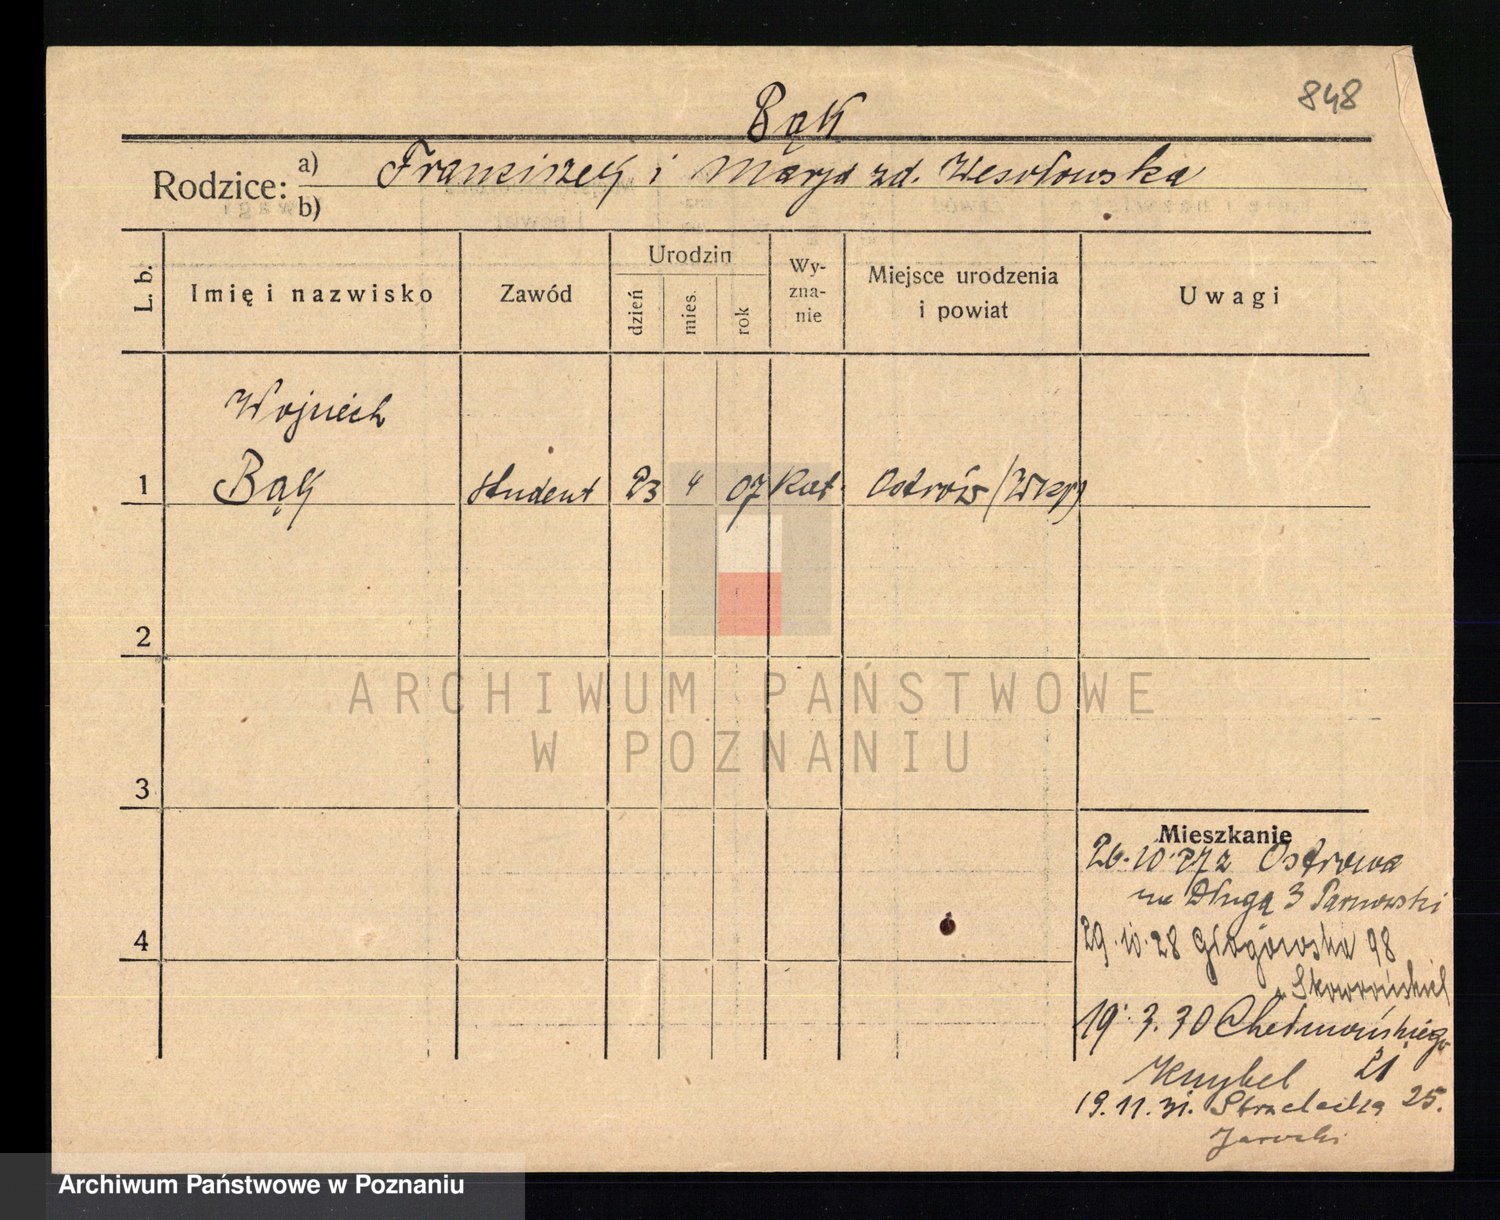 848
Bąk
Rodzice: a) Franciszek i Marja zd. Wesołowska
b)
L. b. Imię i nazwisko Zawód Urodzin dzień mies. rok Wy-zna-nie Miejsce urodzenia i powiat Uwagi
Wojciech
1 Bąk student 23 4 07 Kat. Ostrów (Wkp)
2
ARCHIWUM PAŃSTWOWE
W POZNANIU
3
Mieszkanie
26.10.27 z Ostrowa
na Długą 3 Tarnowski
4
29.10.28 Głogowska 98
19.3.30 Chełmońskiego
21
Knybel
19.11.31. Strzelecka 25.
Jarocki
Archiwum Państwowe w Poznaniu